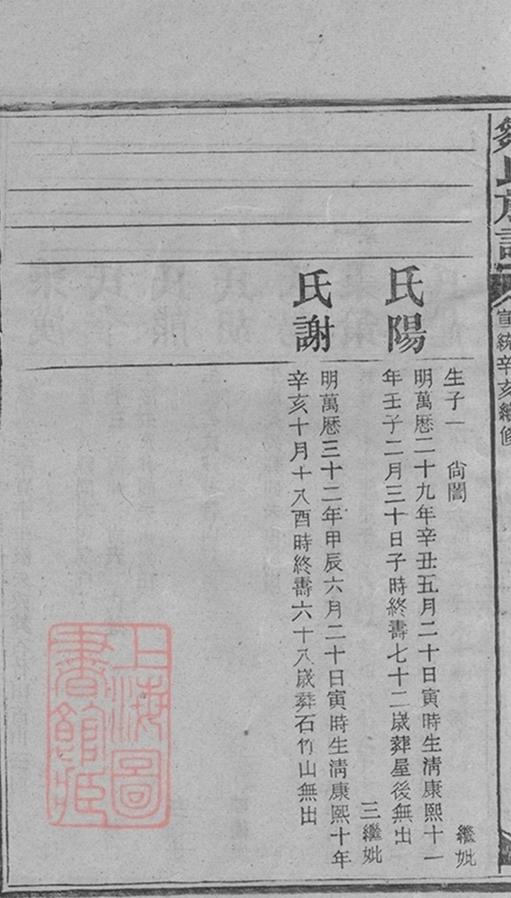 鄒氏族譜
宣統辛亥續修
生子一 尙誾 繼妣
氏陽
明萬曆二十九年辛丑五月二十日寅時生淸康熙十一
年壬子二月三十日子時終壽七十二歲葬屋後無出
三繼妣
氏謝
明萬曆三十二年甲辰六月二十日寅時生淸康熙十年
辛亥十月十八酉時終壽六十八歲葬石竹山無出
上海圖
書館藏